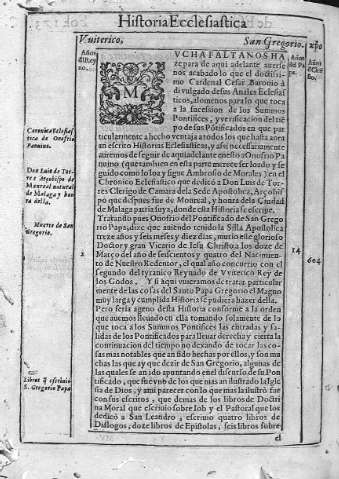 Historia Ecclesiastica
Vuiterico. San Gregorio. xpõ
M
VCHA FALTA NOS HA
re para de aqui adelante auerse
nos acabado lo que el doctissi-
mo Cardenal Cesar Baronio à
divulgado de sus Anales Eclesias-
ticos, alomenos para lo que toca
a la sucession de los Summos
Pontifices, y verificacion del tiē
po de sus Pōtificados en que par
ticularmente a hecho ventaja a todos los que hasta aora
an escrito Historias Eclesiasticas, y asi necessariamente
auremos de seguir de aqui adelante en esto a Onofrio Pa
nuino (que tambien en esta parte merece ser loado y se
guido como lo loa y sigue Ambrosio de Morales) en el
Chronico Ecclesiastico que dedicò a Don Luis de Tor-
res Clerigo de Camara de la Sede Apostolica, Arçobis-
po que despues fue de Monreal, y honra de la Ciudad
de Malaga patria suya, donde esta Historia se escribe.
Tratando pues Onofrio del Pontificado de San Grego
rio Papa, dize que auiendo tenido la Silla Apostolica
treze años y seis meses y diez dias, murio este glorioso
Doctor y gran Vicario de Iesu Christo a los doze de
Março del año de seiscientos y quatro del Nacimiento
de Nuestro Redentor, el qual año concurrio con el
segundo del tyranico Reynado de Vviterico Rey de
los Godos. Y si aqui vuieramos de tratar particular
mente de las cosas del Santo Papa Gregorio el Magno
muy larga y cumplida Historia se pudiera hazer della.
Pero seria ageno desta Historia conforme a la orden
que auemos lleuado en ella tomando solamente de la
que toca a los Summos Pontifices las entradas y sali-
das de los Pontificados para lleuar derecha y cierta la
continuacion del tiempo no dexando de tocar las co-
sas mas notables que an sido hechas por ellos, y son mu
chas las que ay que dezir de San Gregorio, algunas de
las quales se an ido apuntando en el discurso de su Pon
tificado, que fue vno de los que mas an ilustrado la Igle
sia de Dios, y a mi parecer con lo que mas la ilustrò fue
con sus escritos, que demas de los libros de Doctri
na Moral que escriuio sobre Iob y el Pastoral que los
dedicò a San Leandro, escriuio quatro libros de
Dialogos, doze libros de Epistolas, seis libros sobre
el
Coronica Eclesias
tica de Onofrio
Panuino.
Don Luis de Tor-
res Arçobispo de
Monreal natural
de Malaga y hon
ra della.
Muerte de San
Gregorio.
2
14
604
Libros q̃ escriuio
S. Gregorio Papa